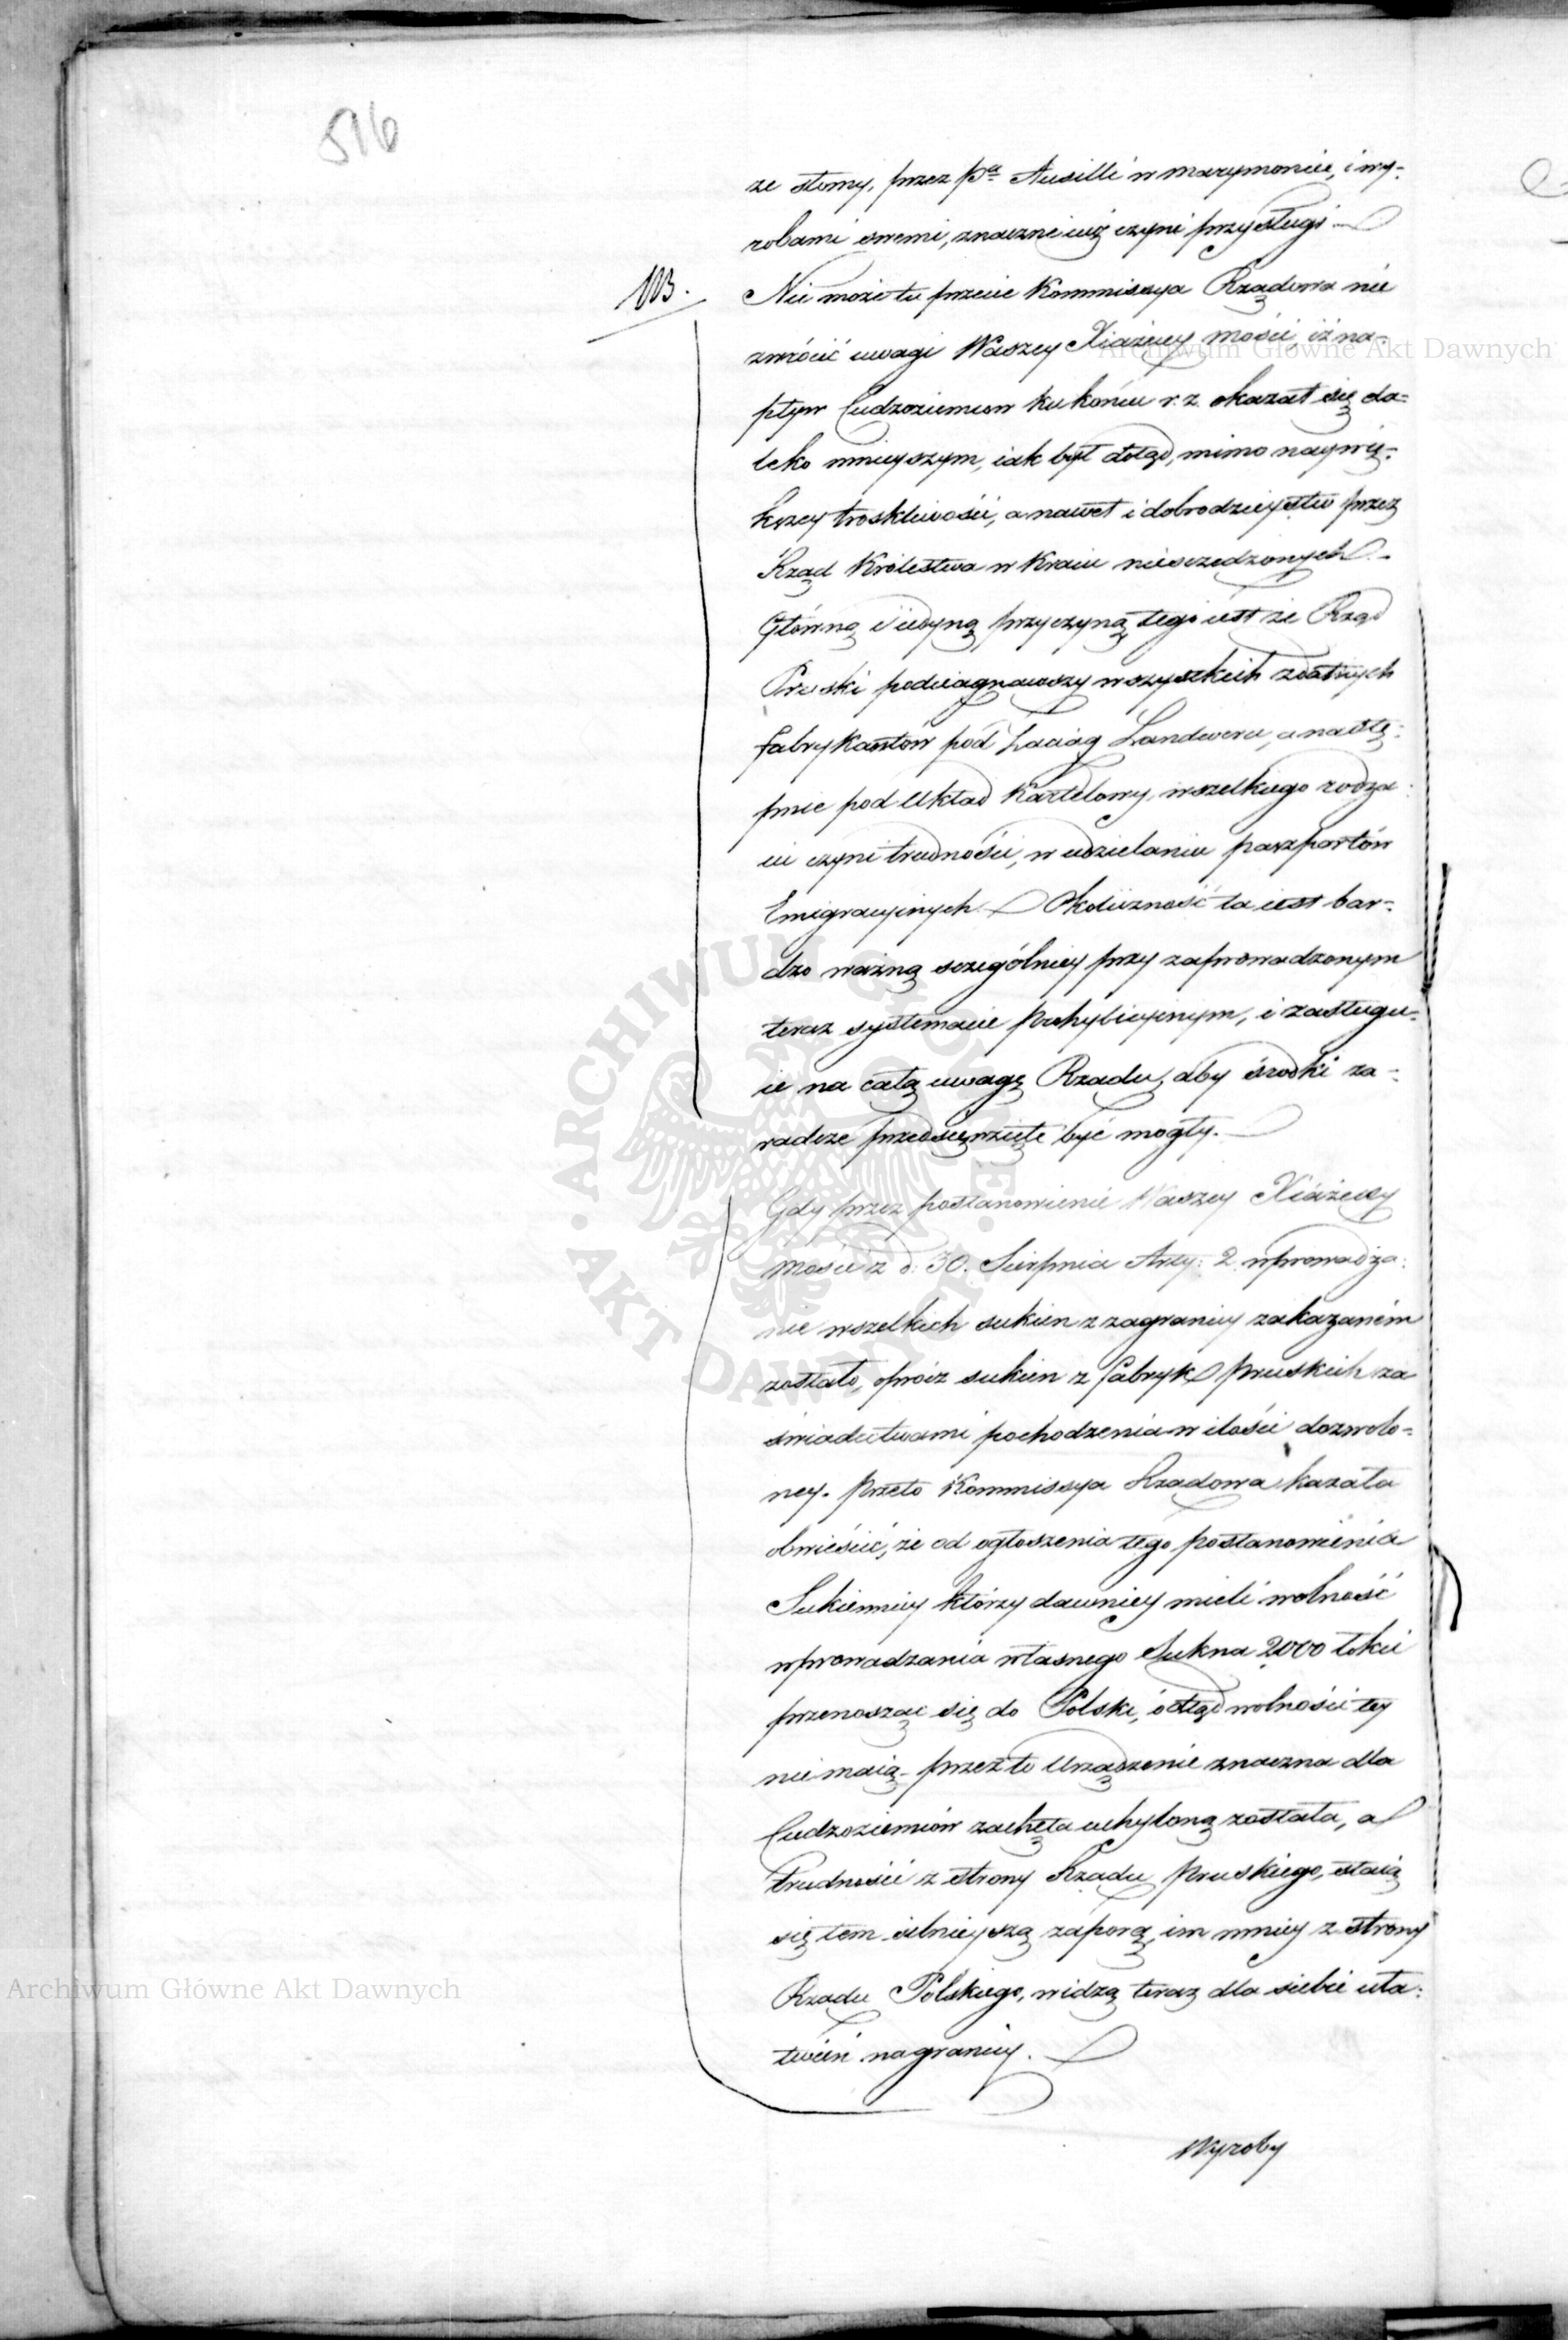 516
ze słomy, przez Pa Ausilli w Marymoncie, i wy-
robami swemi, znaczne iuż czyni przysługi.
NB.
Nie może tu przecie Kommissya Rządowa nie
zwrócić uwagi Waszey Xiążęcey Mości, iż na-
pływ Cudzoziemców ku końcu r. z. okazał się da-
leko mnieyszym, iak był dotąd, mimo naywię-
kszey troskliwości, a nawet i dobrodzieystw przez
Rząd Królestwa w Kraiu nieszczędzonych.
Główną i iedyną przyczyną tego iest że Rząd
Pruski podciągnąwszy wszystkich zdatnych
fabrykantów pod zaciąg Landweru, a nastę-
pnie pod Układ Kartelowy, wszelkiego rodza-
iu czyni trudności, w udzielaniu paszportów
Emigracyinych. Okoliczność ta iest bar-
dzo ważną szczególniey przy zaprowadzonym
teraz systemacie prohybicyinym, i zasługu-
ie na całą uwagę Rządu, aby środki za-
radcze przedsięwzięte być mogły.
Gdy przez postanowienie Waszey Xiążęcey
Mości z d. 30. Sierpnia Arty: 2. wprowadza-
nie wszelkich sukien z zagranicy zakazaném
zostało, oprócz sukien z fabryk Pruskich za
świadectwami pochodzenia w ilości dozwolo-
ney. Przeto Kommissya Rządowa kazała
obwieścić, że od ogłoszenia tego postanowienia
Sukiennicy którzy dawniey mieli wolność
wprowadzania własnego Sukna 2000 łokci
przenosząc się do Polski, odtąd wolności tey
nie maią. przez to Urządzenie znaczna dla
Cudzoziemców zachęta uchyloną została, a
trudności z strony Rządu Pruskiego, staią
się tem silnieyszą zaporą, im mniey z strony
Rządu Polskiego, widzą teraz dla siebie uła-
twień na granicy.
Wyroby
Archiwum Główne Akt Dawnych
Archiwum Główne Akt Dawnych
ARCHIWUM GŁÓWNE AKT DAWNYCH